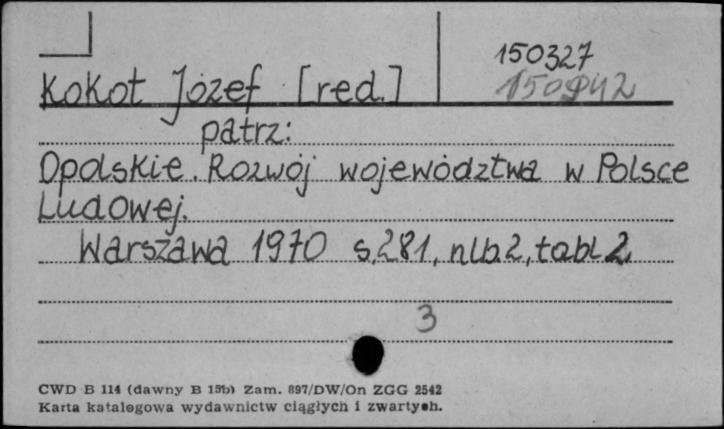 150327
150942
Kokot Józef [red.]
patrz:
Opolskie. Rozwój województwa w Polsce
Ludowej.
Warszawa 1970 s. 281, nlb 2, tabl 2
3
CWD B 114 (dawny B 15b) Zam. 897/DW/On ZGG 2542
Karta katalogowa wydawnictw ciągłych i zwartych.